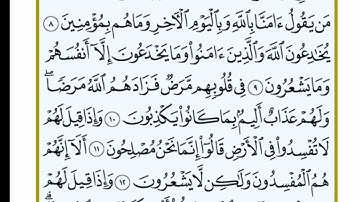 مَن يَقُولُ ءَامَنَّا بِٱللَّهِ وَبِٱلْيَوْمِ ٱلْأَخِرِ وَمَا هُم بِمُؤْمِنِينَ ٨
يُخَٰدِعُونَ ٱللَّهَ وَٱلَّذِينَ ءَامَنُواْ وَمَا يَخْدَعُونَ إِلَّآ أَنفُسَهُمْ
وَمَا يَشْعُرُونَ ٩ فِي قُلُوبِهِم مَّرَضٌ فَزَادَهُمُ ٱللَّهُ مَرَضًا ۖ
وَلَهُمْ عَذَابٌ أَلِيمٌۢ بِمَا كَانُواْ يَكْذِبُونَ ١٠ وَإِذَا قِيلَ لَهُمْ
لَا تُفْسِدُواْ فِي ٱلْأَرْضِ قَالُوٓاْ إِنَّمَا نَحْنُ مُصْلِحُونَ ١١ أَلَآ إِنَّهُمْ
هُمُ ٱلْمُفْسِدُونَ وَلَٰكِن لَّا يَشْعُرُونَ ١٢ وَإِذَا قِيلَ لَهُمْ